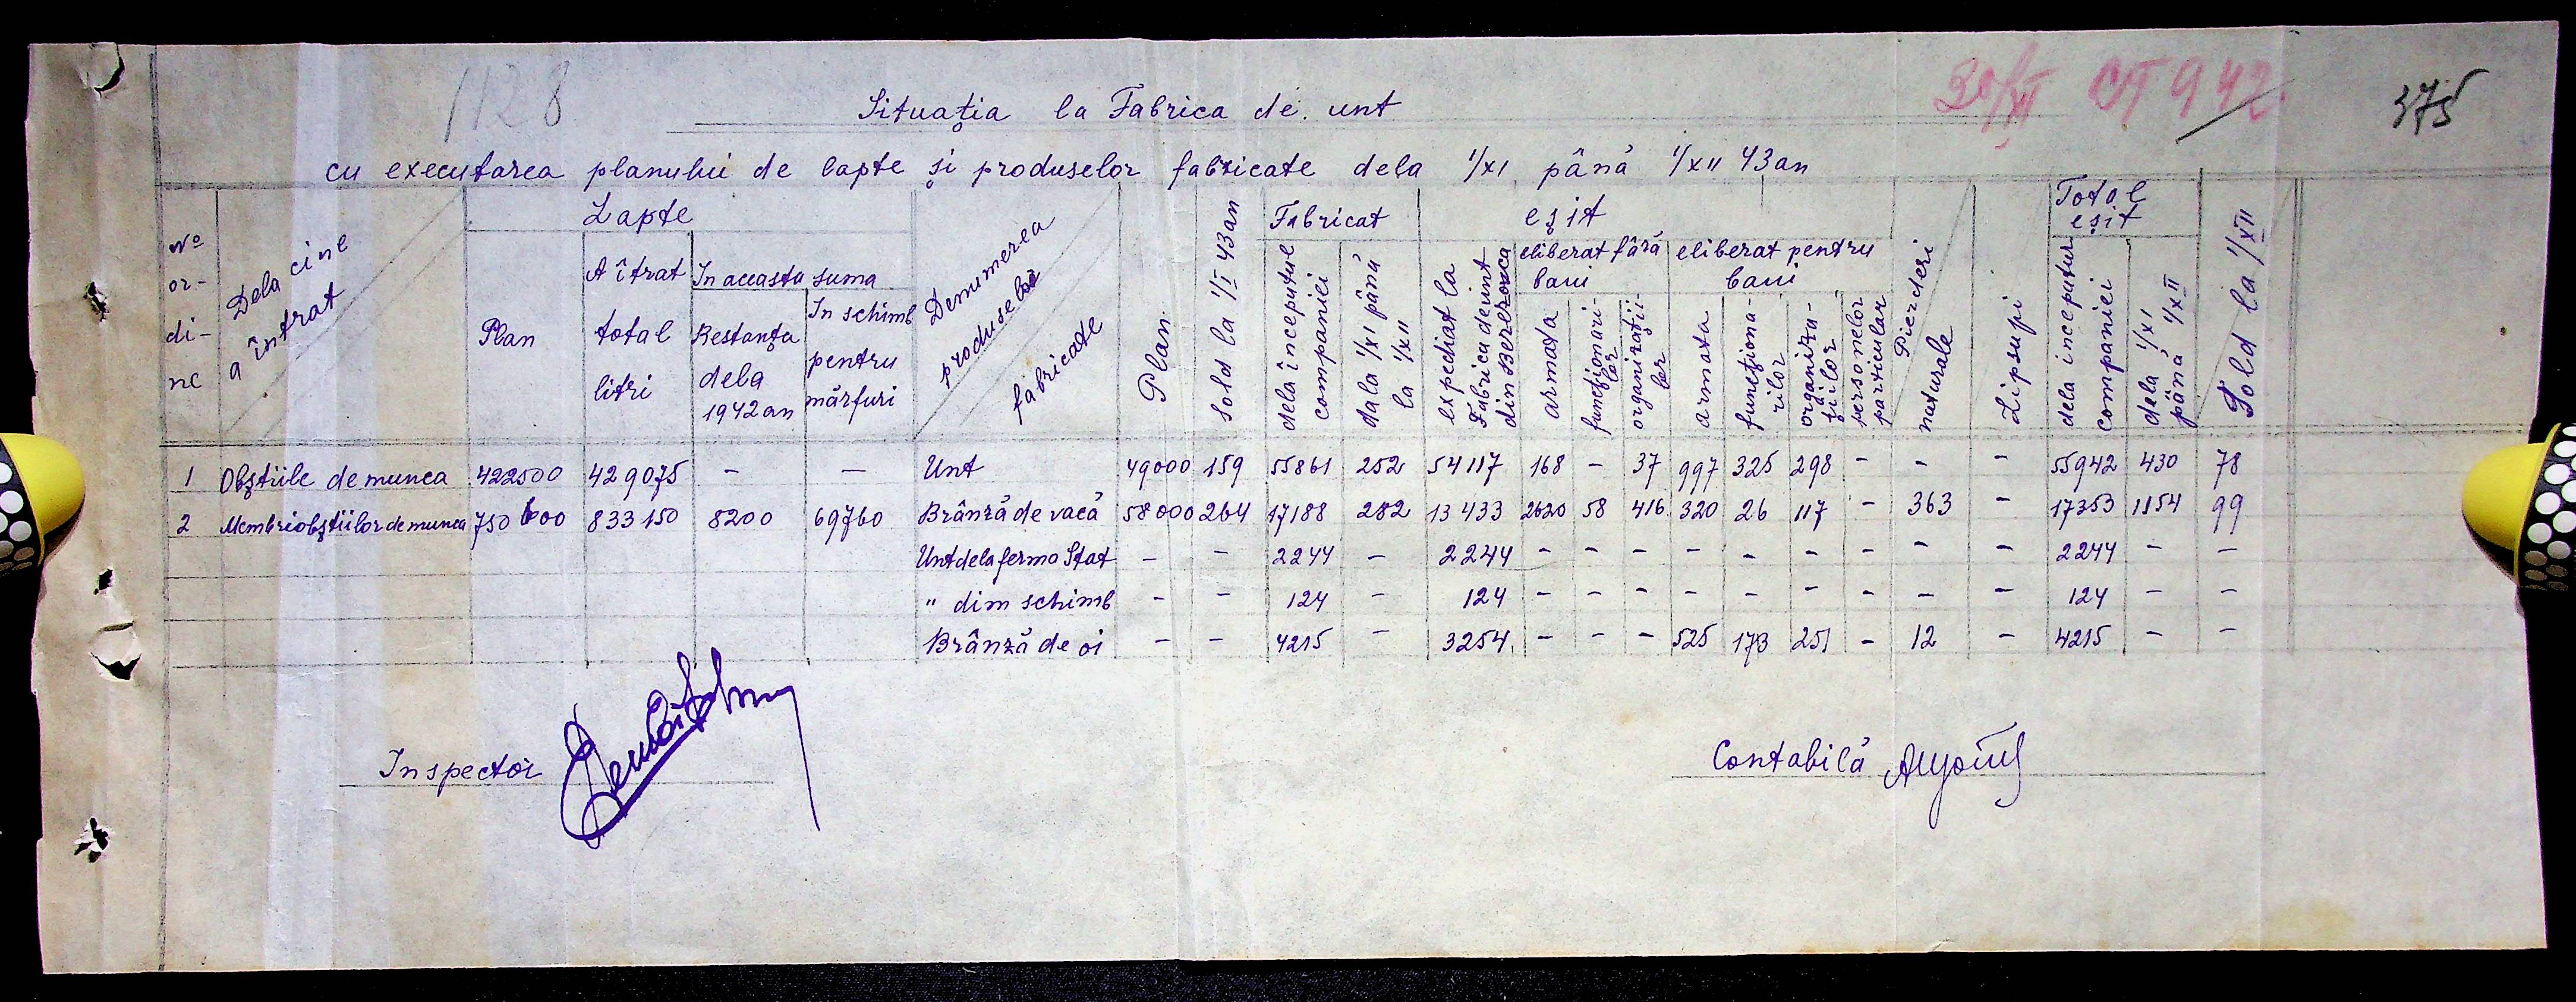 1128
30/XI CT 942.
375
Situația la Fabrica de unt
cu executarea planului de lapte și produselor fabricate dela 1/XI până 1/XII 43 an
No or-di-ne
Dela cine a întrat
Lapte
Plan
A îtrat total litri
In aceasta suma
Restanța dela 1942 an
In schimb pentru mărfuri
Denumerea produselor fabricate
Plan
Sold la 1/I 43 an
Fabricat
dela începutul companiei
dala 1/XI până la 1/XII
eșit
expediat la Fabrica de unt din Berezovca
eliberat fără bani
armata
funcționarilor
organizațiilor
eliberat pentru bani
armata
funcționarilor
organizațiilor
personelor particular
Pierderi naturale
Lipsuri
Total eșit
dela inceputul companiei
dela 1/XI până 1/XII
Sold la 1/XII
1 Obștiile de munca 422500 429075 - - Unt 49000 159 55861 252 54117 168 - 37 997 325 298 - - - 55942 430 78
2 Membri obștiilor de munca 750 600 833150 8200 69760 Brânză de vacă 58000 264 17188 282 13433 2620 58 416 320 26 117 - 363 - 17353 1154 99
Unt dela ferma Stat - - 2244 - 2244 - - - - - - - - - 2244 - -
" dim schimb - - 124 - 124 - - - - - - - - - 124 - -
Brânză de oi - - 4215 - 3254 - - - 525 173 251 - 12 - 4215 - -
Inspector
Contabilă